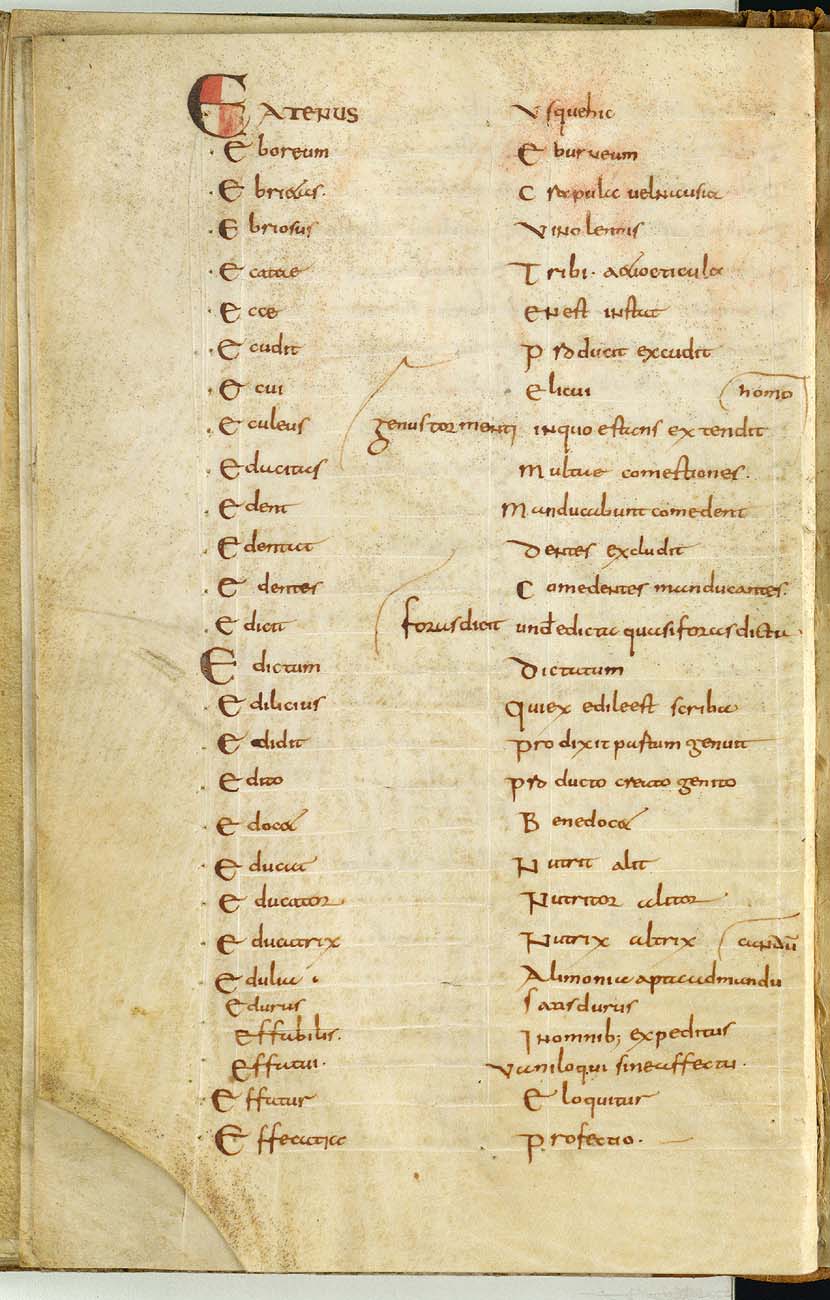 EATENUS Usquehic
Eboreum Eburneum
Ebrietas. Crapula velnausia
Ebriosus Vinolentus
Ecatae Tribi.
Ecce En est instat
Ecudit Producit excudit
Ecui Elicui homo
Eculeus genus tormenti inquo estans extendit
Educitas Multae comestiones.
Edent Manducabunt comedent
Edentat Dentes excludit
Edentes Comedentes manducantes.
Edicit foras dicit und edicta quasi foras dicta
Edictum Dictatum
Edilicius Qui ex edile est scriba
Edidit Prodixit partum genuit
Edito Producto creato genito
Edocet Bene docet
Educat Nutrit alit
Educator Nutritor altor
Educatrix Nutrix altrix
Edulia Alimonia apta ad mandu
Edurus Satis durus
Effabilis. In omnib; expeditus
Effatui. Vaniloqui sine affectu.
Effatur Eloquitur
Effecatia Profectio.